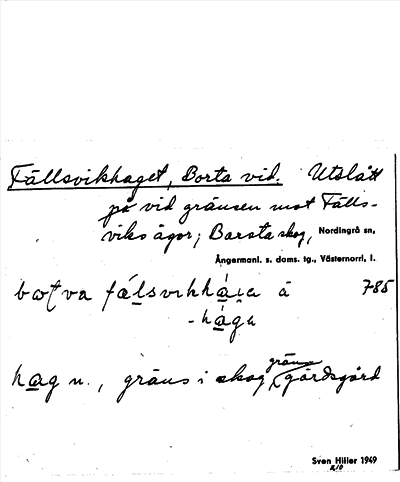 Fällsvikhaget, Borta vid. Utslått
på vid gränsen mot Fälls-
viks ägor; Barsta skog, Nordingrå sn,
Ångermanl. s. doms. tg., Västernorrl. l.
fálsvikháia å 785
-hága
hag n., gräns i skog, gräns
gärdsgård
Sven Hiller 1949